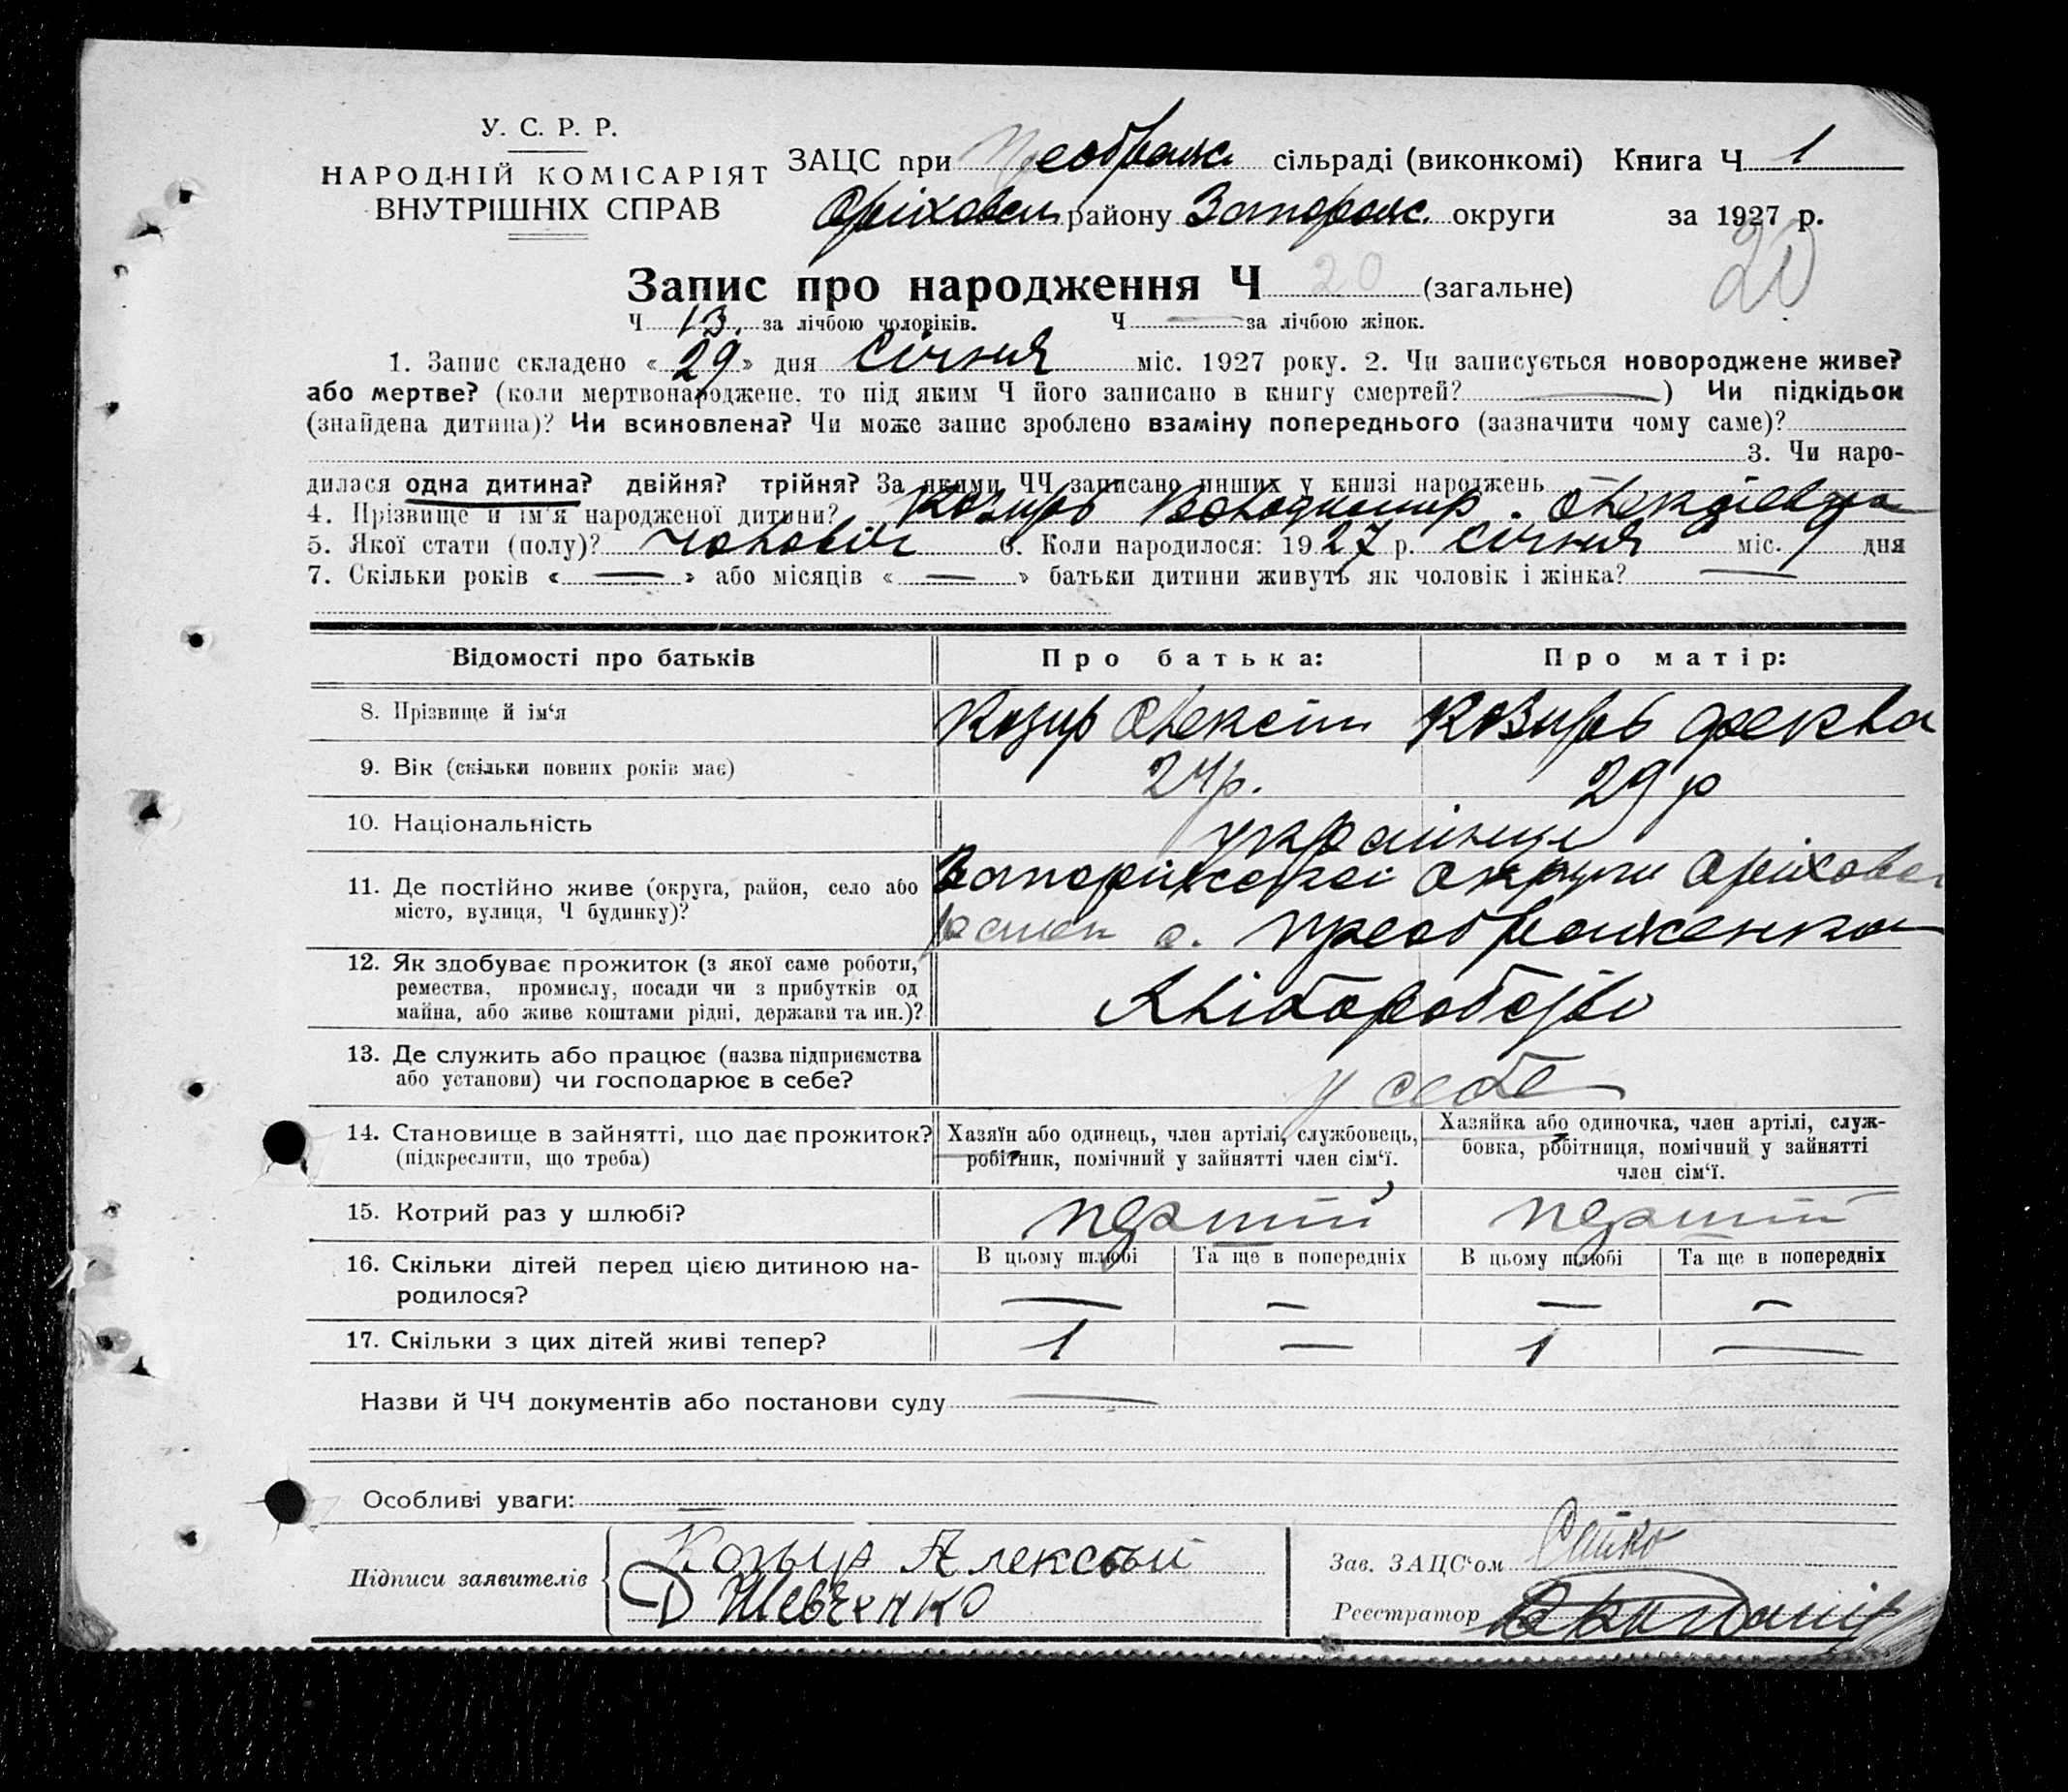 У. С. Р. Р.
НАРОДНІЙ КОМІСАРІЯТ
ВНУТРІШНІХ СПРАВ
ЗАЦС при Преображс сільраді (виконкомі) Книга Ч 1
Оріховськ району Запоріжс. округи за 1927 р.
20
Запис про народження Ч 20 (загальне)
Ч 13. за лічбою чоловіків. Ч — за лічбою жінок.
1. Запис складено « 29 » дня Січня міс. 1927 року. 2. Чи записується новороджене живе?
або мертве? (коли мертвонароджене, то під яким Ч його записано в книгу смертей? —) Чи підкідьок
(знайдена дитина)? Чи всиновлена? Чи може запис зроблено взаміну попереднього (зазначити чому саме)?
3. Чи наро-
дилася одна дитина? двійня? трійня? За якими ЧЧ записано инших у книзі народжень
4. Прізвище й ім'я народженої дитини? Козирь Володимир
5. Якої стати (полу)? чоловіч 6. Коли народилося: 1927 р. січня міс. 9 дня
7. Скільки років « — » або місяців « — » батьки дитини живуть як чоловік і жінка? —
Відомості про батьків Про батька: Про матір:
8. Прізвище й ім'я Козир Олексій Козирь Фекла
9. Вік (скільки повних років має) 24р. 29 р
10. Національність українці
11. Де постійно живе (округа, район, село або місто, вулиця, Ч будинку)? Запоріжської округи Оріховськ
район с. Преображенка
12. Як здобуває прожиток (з якої саме роботи,
ремества, промислу, посади чи з прибутків од
майна, або живе коштами рідні, держави та ин.)? Хліборобство
13. Де служить або працює (назва підприємства
або установи) чи господарює в себе? у себе
14. Становище в зайнятті, що дає прожиток?
(підкреслити, що треба)
Хазяїн або одинець, член артілі, службовець,
робітник, помічний у зайнятті член сім'ї.
Хазяйка або одиночка, член артілі, служ-
бовка, робітниця, помічний у зайнятті
член сім'ї.
15. Котрий раз у шлюбі? перший перший
16. Скільки дітей перед цією дитиною на-
родилося?
В цьому шлюбі Та ще в попередніх В цьому шлюбі Та ще в попередніх
— — — —
17. Скільки з цих дітей живі тепер? 1 — 1 —
Назви й ЧЧ документів або постанови суду —
Особливі уваги: —
Підписи заявителів Козыр Алексъй
Д Шевченко
Зав. ЗАЦС'ом
Реєстратор